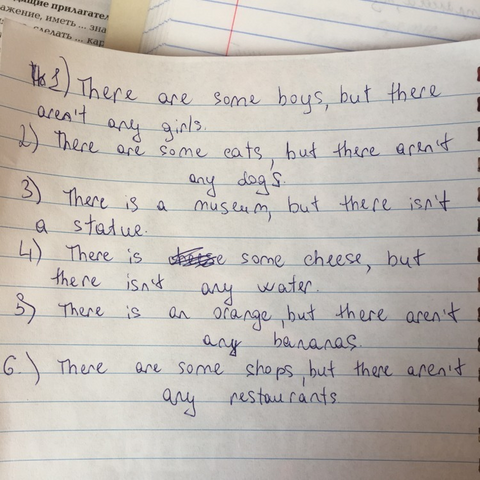 дящие прилагател
ажение, иметь ... зна
сделать ... кар
1) There are some boys, but there
aren't any girls.
2) There are some cats, but there aren't
any dogs.
3) There is a museum, but there isn't
a statue.
4) There is some cheese, but
there isn't any water.
5) There is an orange, but there aren't
any bananas.
6.) There are some shops, but there aren't
any restaurants